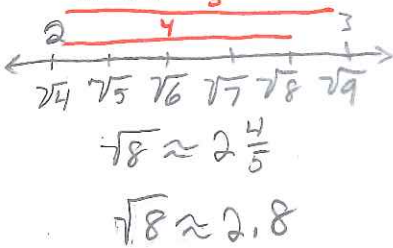 2 4 3
√4 √5 √6 √7 √8 √9
√8 ≈ 2 4/5
√8 ≈ 2.8